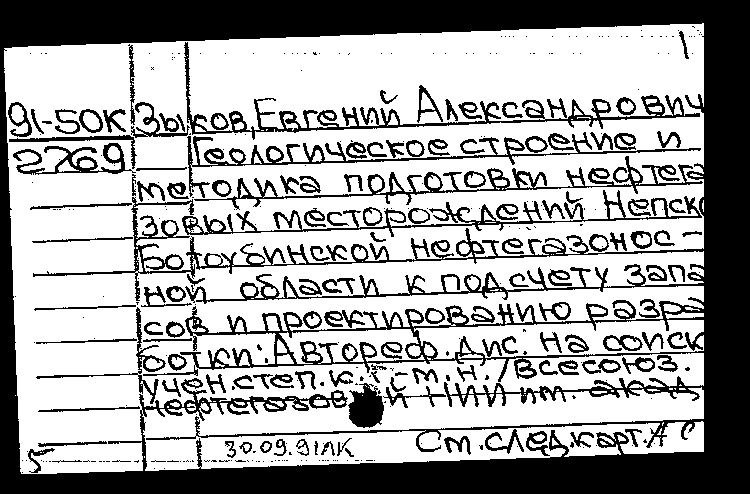 1
91-50К Зыков, Евгений Александрович
2769 Геологическое строение и
методика подготовки нефтега
зовых месторождений Непско
Ботоубинской нефтегазонос-
ной области к подсчету запа
сов и проектированию разра
ботки: Автореф. дис. на соиск
учен. степ. к. г.-м. н. / Всесоюз.
нефтегазов й НИИ им. акад
5 30.09.91ЛК См. след. карт. А С